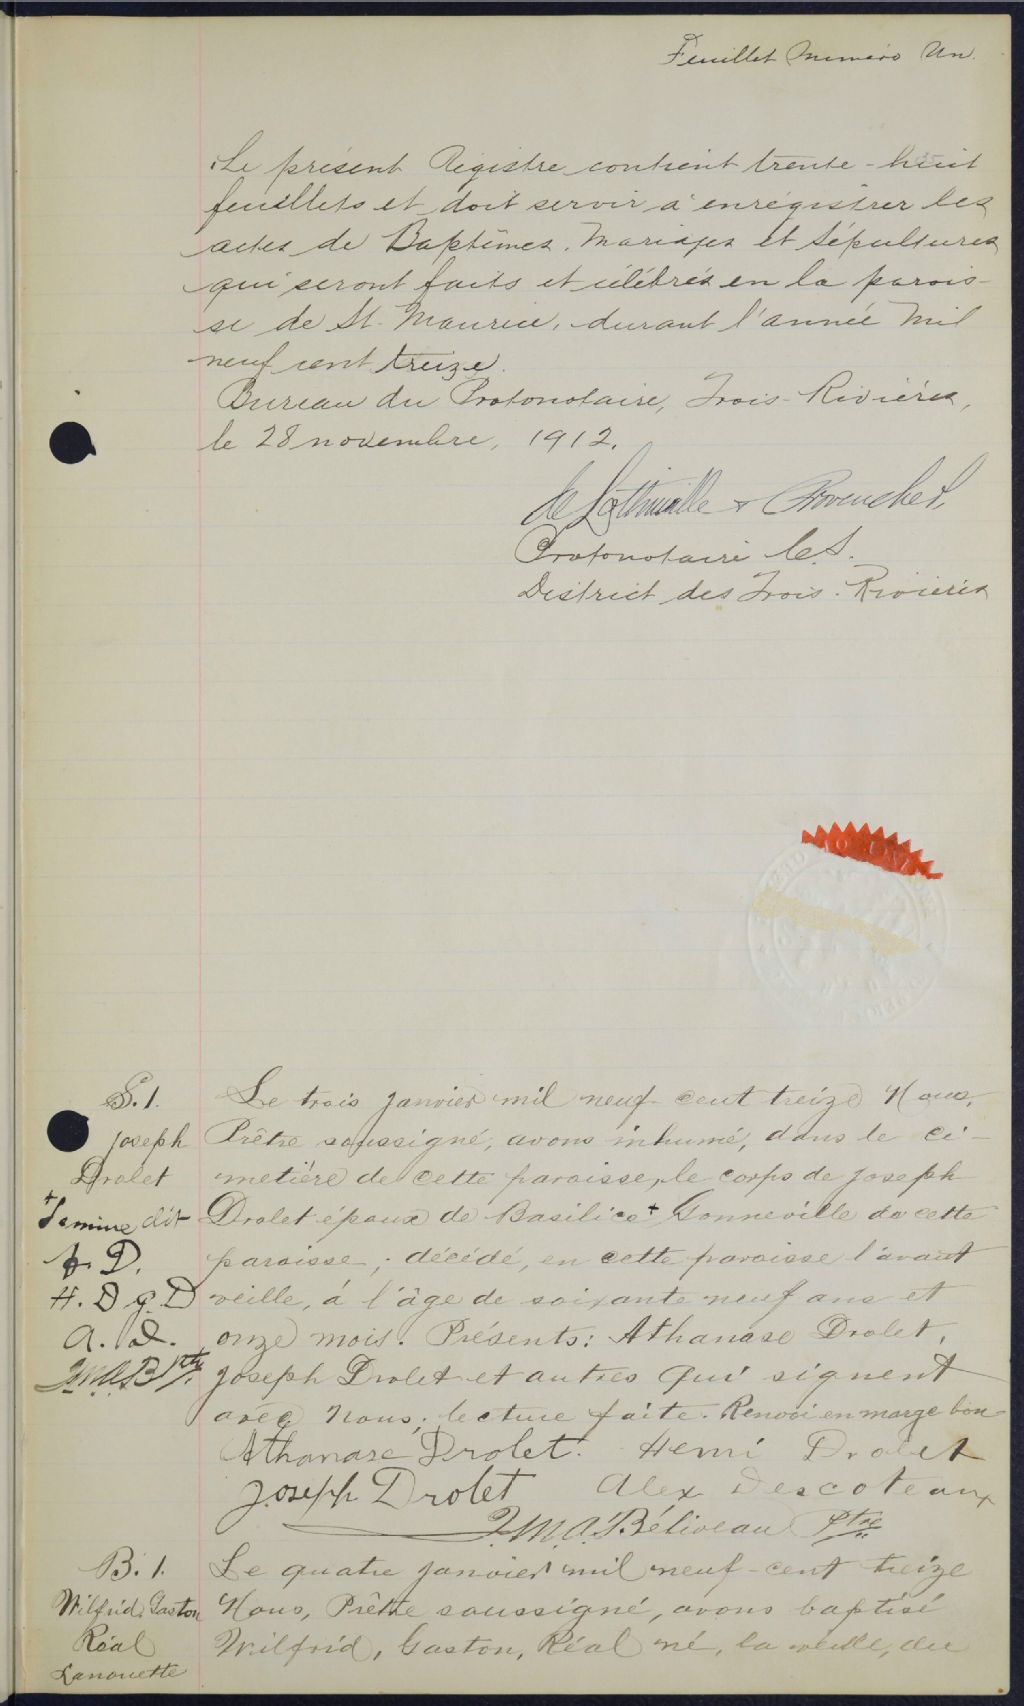 Feuillet Numéro Un.
Le présent Régistre contient trente-huit
feuillets et doit servir à enrégistrer les
actes de Baptêmes, Mariages et Sépultures
qui seront faits et célébrés en la parois-
se de St. Maurice, durant l'année Mil
neuf cent treize.
Bureau du Protonotaire, Trois-Rivières,
le 28 novembre, 1912.
de Lottinville & Provencher,
Protonotaire C.S.
District des Trois-Rivières
S. 1.
Joseph
Drolet
+ Lemire dit
A. D.
H. D J. D
A. D.
J.M.A.B Ptre
Le trois Janvier mil neuf-cent treize Nous,
Prêtre soussigné, avons inhumé, dans le ci-
metière de cette paroisse, le corps de Joseph
Drolet époux de Basilice + Gonneville de cette
paroisse, ; décédé, en cette paroisse l'avant
veille, à l'âge de soixante neuf ans et
onze mois. Présents: Athanase Drolet,
Joseph Drolet et autres qui signent
avec Nous; lecture faite. Renvoi en marge bon
Athanase Drolet. Henri Drolet
Joseph Drolet Alex Descoteaux
J.M.A. Béliveau Ptre
B. 1.
Wilfrid Gaston
Réal
Lanouette
Le quatre Janvier mil neuf-cent treize
Nous, Prêtre soussigné, avons baptisé
Wilfrid, Gaston, Réal né, la veille, du